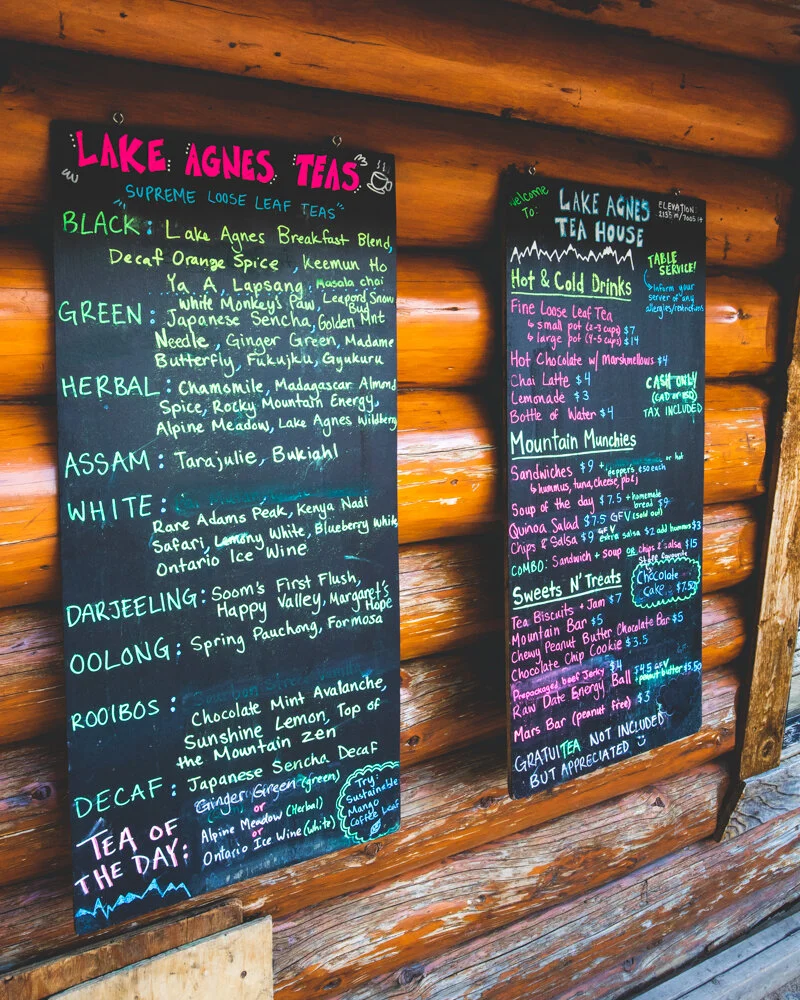 LAKE AGNES TEAS
"SUPREME LOOSE LEAF TEAS"
BLACK: Lake Agnes Breakfast Blend,
Decaf Orange Spice, Keemun Ho
Ya A, Lapsang, Masala chai
White Monkey's Paw, Leopard Snow
Bud
GREEN: Japanese Sencha, Golden Mnt
Needle, Ginger Green, Madame
Butterfly, Fukujku, Gyukuru
HERBAL: Chamomile, Madagascar Almond
Spice, Rocky Mountain Energy,
Alpine Meadow, Lake Agnes Wildberry
ASSAM: Tarajulie, Bukiahl
WHITE:
Rare Adams Peak, Kenya Nadi
Safari, Lemony White, Blueberry White
Ontario Ice Wine
DARJEELING: Soom's First Flush,
Happy Valley, Margaret's
Hope
OOLONG: Spring Pauchong, Formosa
ROOIBOS: Chocolate Mint Avalanche,
Sunshine Lemon, Top of
the Mountain Zen
DECAF: Japanese Sencha Decaf
TEA OF
THE DAY:
Ginger Green (green)
or
Alpine Meadow (Herbal)
or
Ontario Ice Wine (white)
Try:
Sustainable
Mango
Coffee Leaf
Welcome
To:
LAKE AGNES
TEA HOUSE
ELEVATION:
2135 m/7005 ft
Hot & Cold Drinks
TABLE
SERVICE!
Inform your
server of any
allergies/restrictions
Fine Loose Leaf Tea
small pot (2-3 cups) $7
large pot (4-5 cups) $14
Hot Chocolate w/ Marshmellows $4
Chai Latte $4
Lemonade $3
Bottle of Water $4
CASH ONLY
(CAD or USD)
TAX INCLUDED
Mountain Munchies
Sandwiches $9 + peppers $.50 each
or hot
hummus, tuna, cheese, pb&j
Soup of the day $7.5 + homemade
bread $9
Quinoa Salad $7.5 GFV (sold out)
Chips & Salsa $9 GFV extra salsa $2 add hummus $3
COMBO: Sandwich + Soup or chips & salsa $15
Sweets N' Treats
Staff favourite
Chocolate
Cake $7.50
Tea Biscuits + Jam $7
Mountain Bar $5
Chewy Peanut Butter Chocolate Bar $5
Chocolate Chip Cookie $3.5
Prepackaged beef Jerky $4
Raw Date Energy Ball $4.5 GFV
+ peanut butter $5.50
Mars Bar (peanut free) $3
GRATUITEA NOT INCLUDED
BUT APPRECIATED